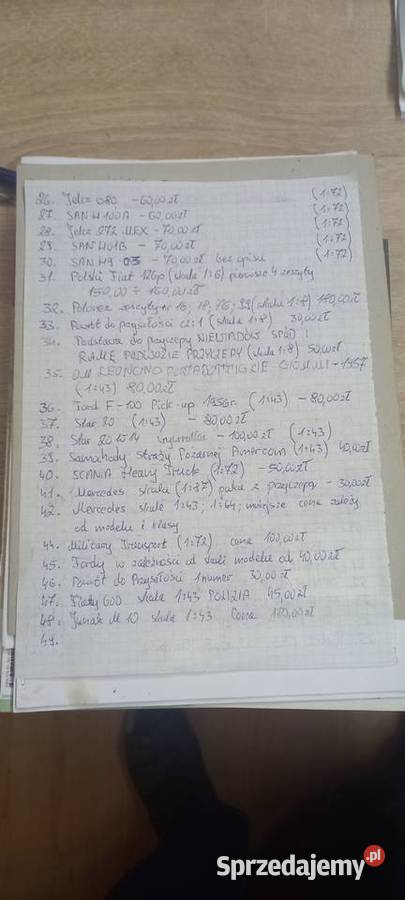 26. Jelcz 080 - 60,00zł (1:72)
27. SAN H 100A - 60,00zł (1:72)
28. Jelcz 272 MEX - 70,00zł (1:72)
29. SAN H01B - 70,00zł (1:72)
30. SAN H9 03 - 70,00zł bez opisu (1:72)
31. Polski Fiat 126p (skala 1:8) pierwsze 4 zeszyty
150,00 160,00zł
32. Polonez zeszyty nr 16; 18, 76; 99 (skala 1:8) 180,00zł
33. Powrót do przyszłości cz: 1 (skala 1:8) 30,00zł
34. Podstawa do przyczepy NIEWIADÓW SPÓD i
RAMĘ PODWOZIE PRZYCZEPY (skala 1:8) 50,00zł
35. OM LEONCINO - 1957
(1:43) 80,00zł
36. Ford F-100 Pick-up 1956r. (1:43) - 80,00zł
37. Star 20 (1:43) - 80,00zł
38. Star 20 - 100,00zł (1:43)
39. Samochody Straży Pożarnej Amercom (1:43) 40,00zł
40. SCANIA Heavy Truck (1:72) - 50,00zł
41. Mercedes skala (1:87) paka z przyczepą - 30,00zł
42. Mercedes skala 1:43; 1:64; mniejsze cena zależy
od modelu i klasy
44. Military Transport (1:72) cena 100,00zł
45. Fordy w zależności od skali modelu od 40,00zł
46. Powrót do Przyszłości 1 numer 30,00zł
47. Fiaty 600 skala 1:43 POLIZIA 45,00zł
48. Junak M 10 skala 1:43 Cena 180,00zł
49.
Sprzedajemy.pl